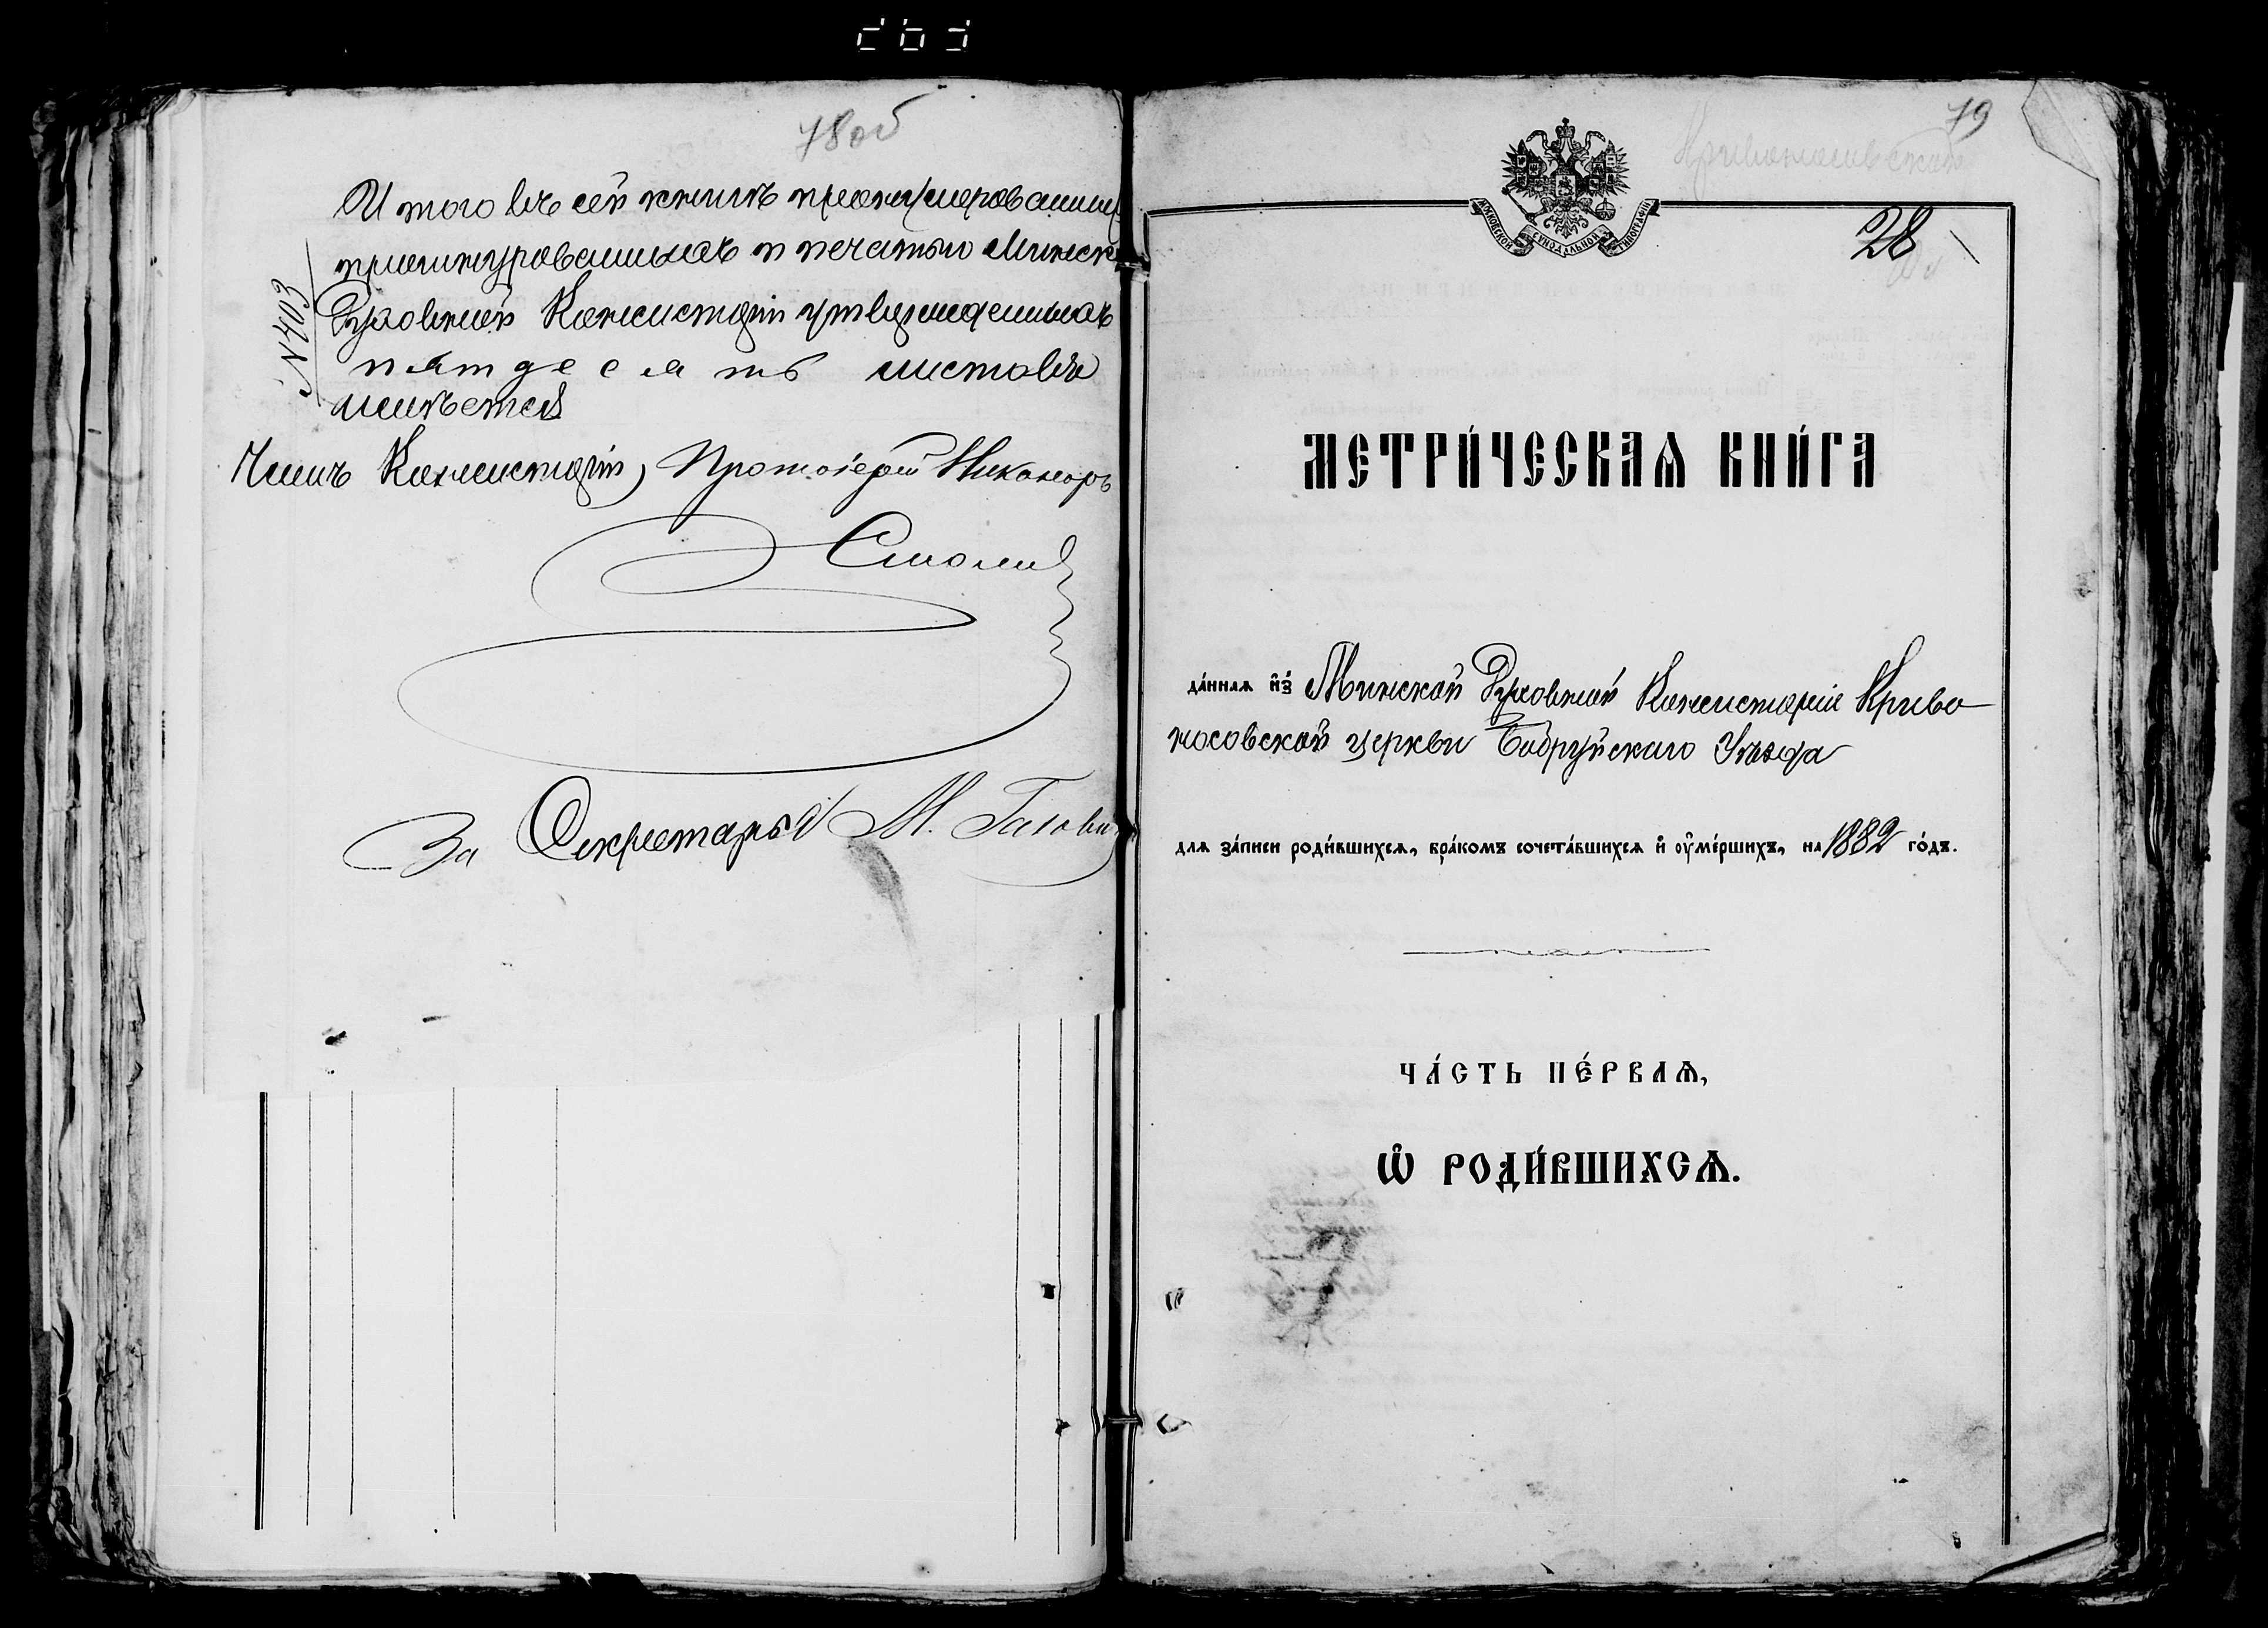 78 об
Итого въ сей книгѣ пронумерованны
прошнурованныхъ и печатью Минск
Духовной Консисторіи утвержденныхъ
пятдесятъ листовъ
имѣется
№ 403
Членъ Консисторіи, Протоіерей Никаноръ
Смолич
За Секретаря М.
79
28
МОСКОВСКОЙ СѴНОДАЛЬНОЙ ТИПОГРАФІИ
МЕТРИ́ЧЕСКАѦ КНИ́ГА
да́ннаѧ и҆з̾ Минской Духовной Консисторіи Криво
носовской церкви Бобруйскаго Уѣзда
для за́писи роди́вшихсѧ, бра́комъ сочета́вшихсѧ и҆ оу҆ме́ршихъ, на 1882 го́дъ.
ЧА́СТЬ ПЕ́РВАѦ,
Ѡ҆ РОДИ́ВШИХСѦ.